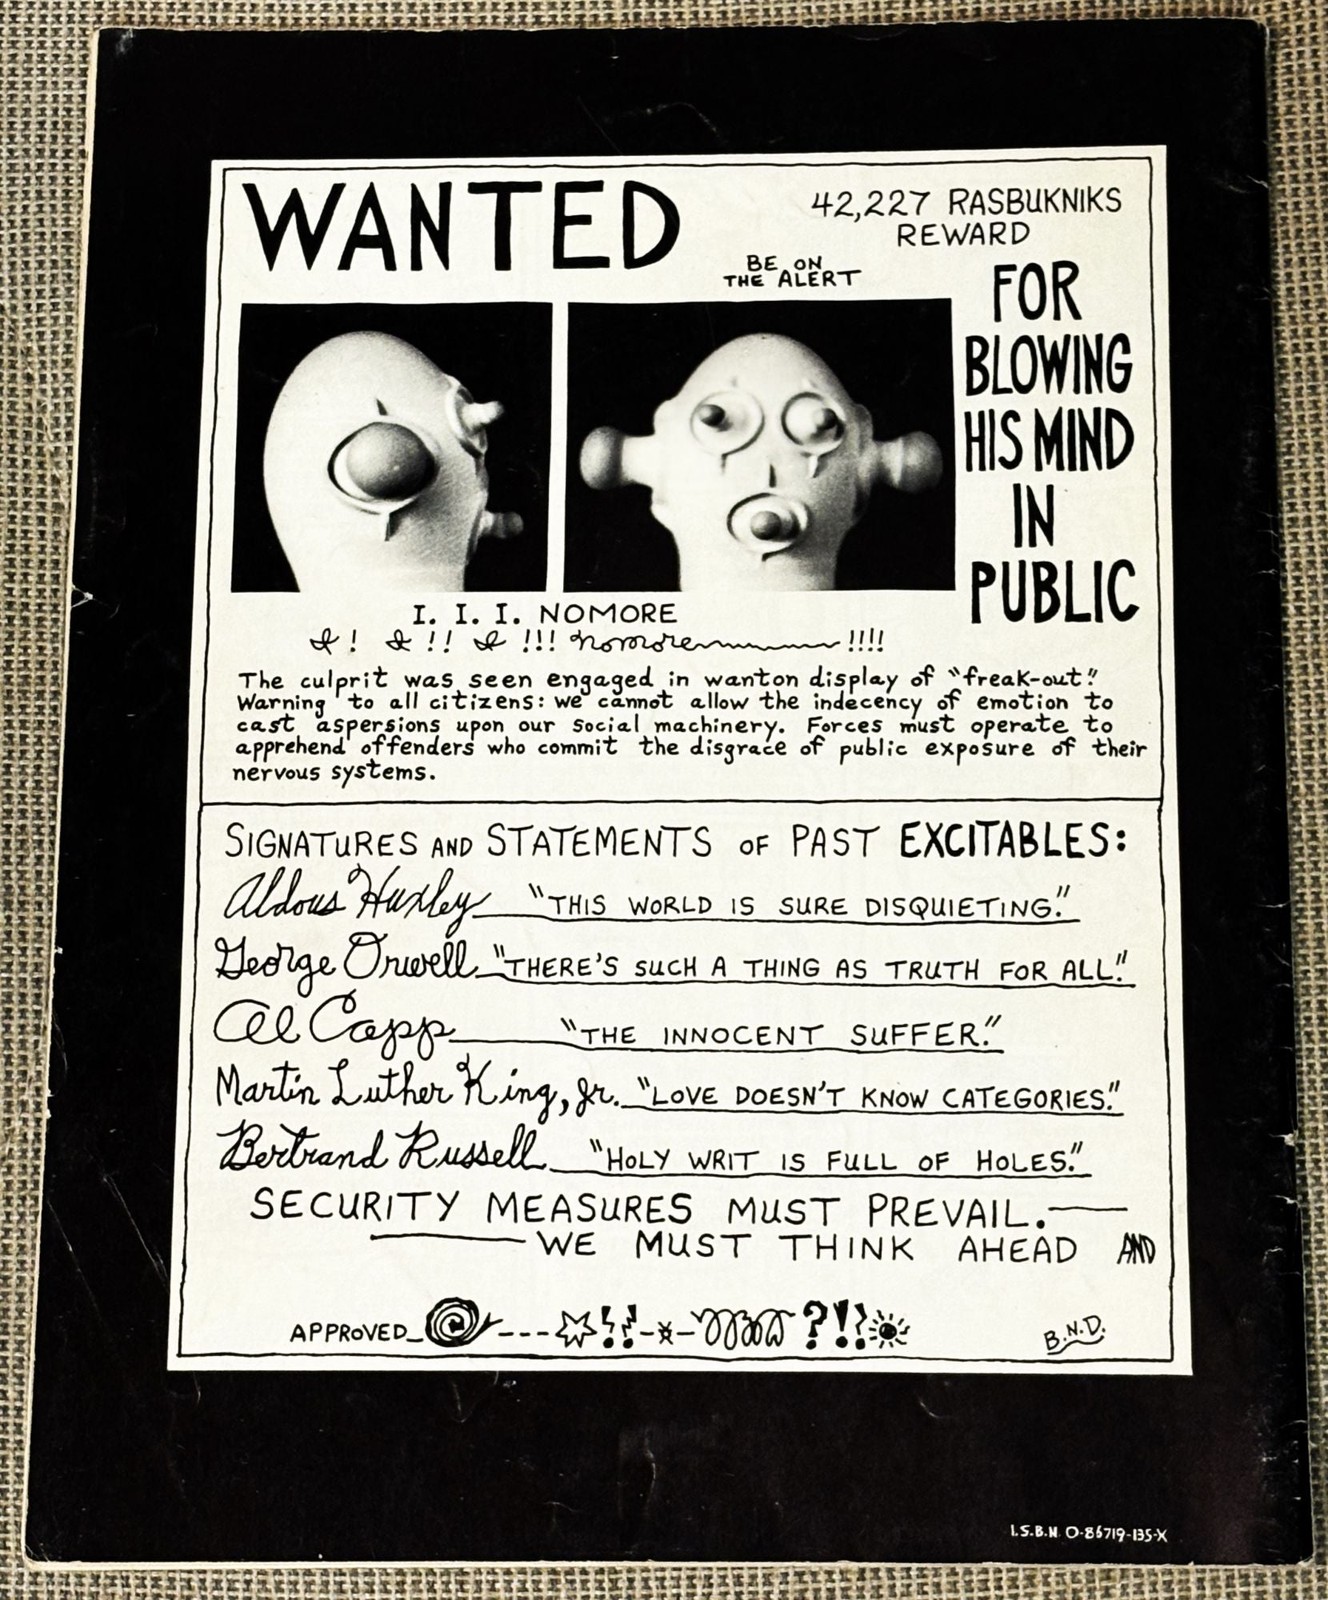 WANTED
42,227 RASBUKNIKS
REWARD
BE ON
THE ALERT
FOR
BLOWING
HIS MIND
IN
PUBLIC
I. I. I. NOMORE
I! I!! I!!! nomore!!!!
The culprit was seen engaged in wanton display of "freak-out."
Warning to all citizens: we cannot allow the indecency of emotion to
cast aspersions upon our social machinery. Forces must operate to
apprehend offenders who commit the disgrace of public exposure of their
nervous systems.
SIGNATURES AND STATEMENTS OF PAST EXCITABLES:
Aldous Huxley "THIS WORLD IS SURE DISQUIETING."
George Orwell "THERE'S SUCH A THING AS TRUTH FOR ALL."
Al Capp "THE INNOCENT SUFFER."
Martin Luther King, Jr. "LOVE DOESN'T KNOW CATEGORIES."
Bertrand Russell "HOLY WRIT IS FULL OF HOLES."
SECURITY MEASURES MUST PREVAIL.
WE MUST THINK AHEAD AND
APPROVED ---- !! -*- ?!!
B.N.D.
I.S.B.N. 0-86719-135-X